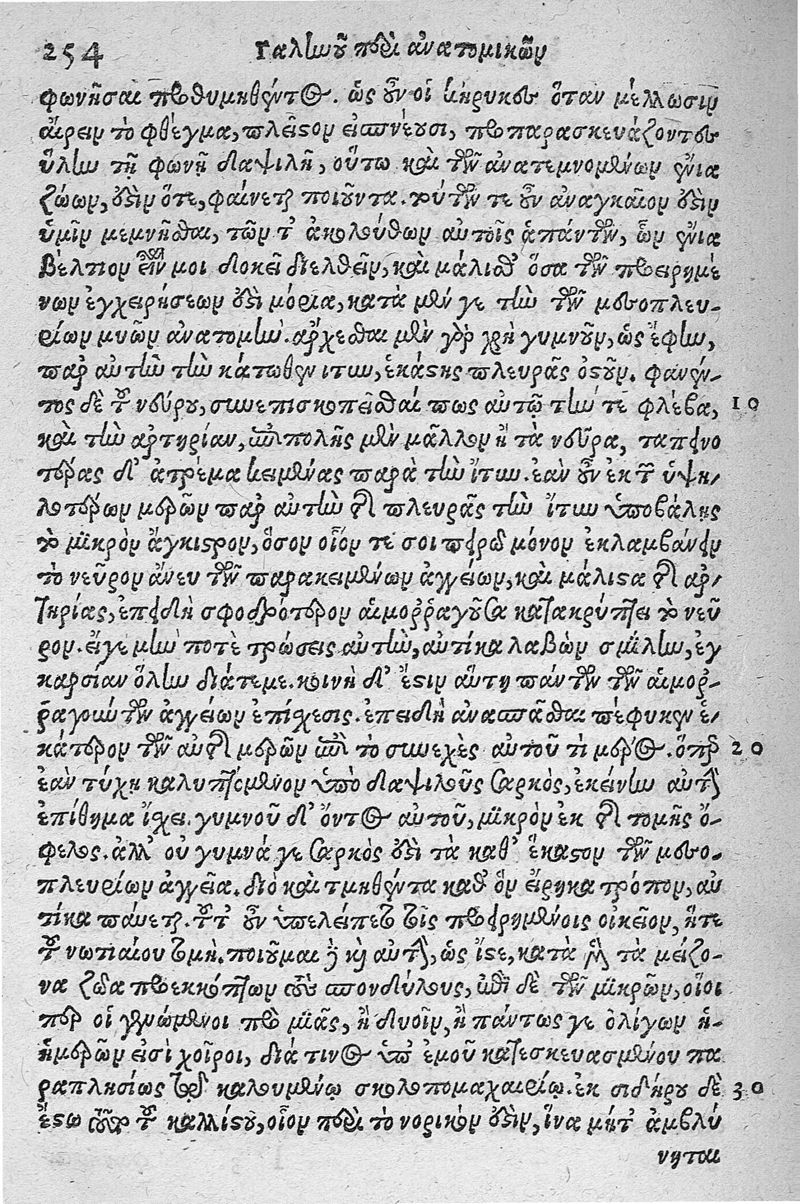 254 Γαληνοῦ περὶ ἀνατομικῶν
φωνῆσαι προθυμηθέντος. ὡς οὖν οἱ κήρυκες ὅταν μέλλωσιν
αἴρειν τὸ φθέγμα, πλεῖστον εἰσπνέουσι, προπαρασκευάζοντες
ὕλην τῇ φωνῇ δαψιλῆ, οὕτω καὶ τῶν ἀνατεμνομένων ἔνια
ζώων, ἔστιν ὅτε, φαίνεται ποιοῦντα. τούτων τε οὖν ἀναγκαῖον ἔστιν
ὑμῖν μεμνῆσθαι, τῶν τ' ἀκολούθων αὐτοῖς ἁπάντων, ὧν ἔνια
βέλτιον εἶναί μοι δοκεῖ διελθεῖν, καὶ μάλισθ' ὅσα τῶν προειρημέ
νων ἐγχειρήσεων ἐστὶ μόρια, κατὰ μέν γε τὴν τῶν μεσοπλευ-
ρίων μυῶν ἀνατομήν. ἄρχεσθαι μὲν γὰρ χρὴ γυμνοῦν, ὡς ἔφην,
παρ' αὐτὴν τὴν κάτωθεν ἴτυν, ἑκάστης πλευρᾶς ὀστοῦν. φανέν-
τος δὲ τοῦ νεύρου, συνεπισκοπεῖσθαί πως αὐτῷ τήν τε φλέβα, 10
καὶ τὴν ἀρτηρίαν, ἐπιπολῆς μὲν μᾶλλον ἢ τὰ νεῦρα, ταπεινο
τέρας δ' ἀτρέμα κειμένας παρὰ τὴν ἴτυν. ἐὰν οὖν ἐκ τῶν ὑψη-
λοτέρων μερῶν παρ' αὐτὴν τῆς πλευρᾶς τὴν ἴτυν ὑποβάλῃς
τὸ μικρὸν ἄγκιστρον, ὅσον οἷόν τέ σοι πειρῶ μόνον ἐκλαμβάνειν
τὸ νεῦρον ἄνευ τῶν παρακειμένων ἀγγείων, καὶ μάλιστα τῆς ἀρ-
τηρίας, ἐπειδὴ σφοδρότερον αἱμορῥαγοῦσα κατακρύπτει τὸ νεῦ
ρον. εἴγε μήν ποτὲ τρώσεις αὐτὴν, αὐτίκα λαβὼν σμίλην, ἐγ
καρσίαν ὅλην διάτεμε. κοινὴ δ' ἔστιν αὕτη πάντων τῶν αἱμορ-
ῥαγούντων ἀγγείων ἐπίσχεσις. ἐπειδὴ ἀνασπᾶσθαι πέφυκεν ἑ-
κάτερον τῶν αὐτῆς μερῶν ἐπὶ τὸ συνεχὲς αὐτοῦ τι μέρος. ὅπερ 20
ἐὰν τύχῃ καλυπτόμενον ὑπὸ δαψιλοῦς σαρκὸς, ἐκείνην αὐτῆς
ἐπίθημα ἴσχει. γυμνοῦ δ' ὄντος αὐτοῦ, μικρὸν ἐκ τῆς τομῆς ὄ-
φελος. ἀλλ' οὐ γυμνά γε σαρκός ἐστι τὰ καθ' ἕκαστον τῶν μεσο-
πλευρίων ἀγγεῖα. διὸ καὶ τμηθέντα καθ' ὃν εἴρηκα τρόπον, αὐ
τίκα παύεται. τοῦτ' οὖν ὑπελείπετο τοῖς προειρημένοις οἰκεῖον, ἥτε
τοῦ νωτιαίου τομὴ. ποιοῦμαι γὰρ καὶ αὐτὴν, ὡς ἴστε, κατὰ μὲν τὰ μείζο-
να ζῶα προεκκόπτων τοὺς σπονδύλους, ἐπὶ δὲ τῶν μικρῶν, οἷοι
περ οἱ γενόμενοι πρὸ μιᾶς, ἢ δυοῖν, ἢ πάντως γε ὀλίγων ἡ-
ἡμερῶν εἰσὶ χοῖροι, διά τινος ὑπ' ἐμοῦ κατεσκευασμένου πα
ραπλησίως τῷ καλουμένῳ σκολοπομαχαιρίῳ. ἐκ σιδήρου δὲ 30
ἔστω τοῦ καλλίστου, οἷον περὶ τὸ νορικὸν ἔστιν, ἵνα μήτ' ἀμβλύ
νηται